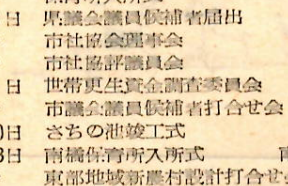 日 県議会議員候補者届出
市社協会理事会
市社協評議員会
日 世帯更生資金調査委員会
市議会議員候補者打合せ会
日 さちの池竣工式
3日 南橋保育所入所式
東部地域新農村設計打合せ